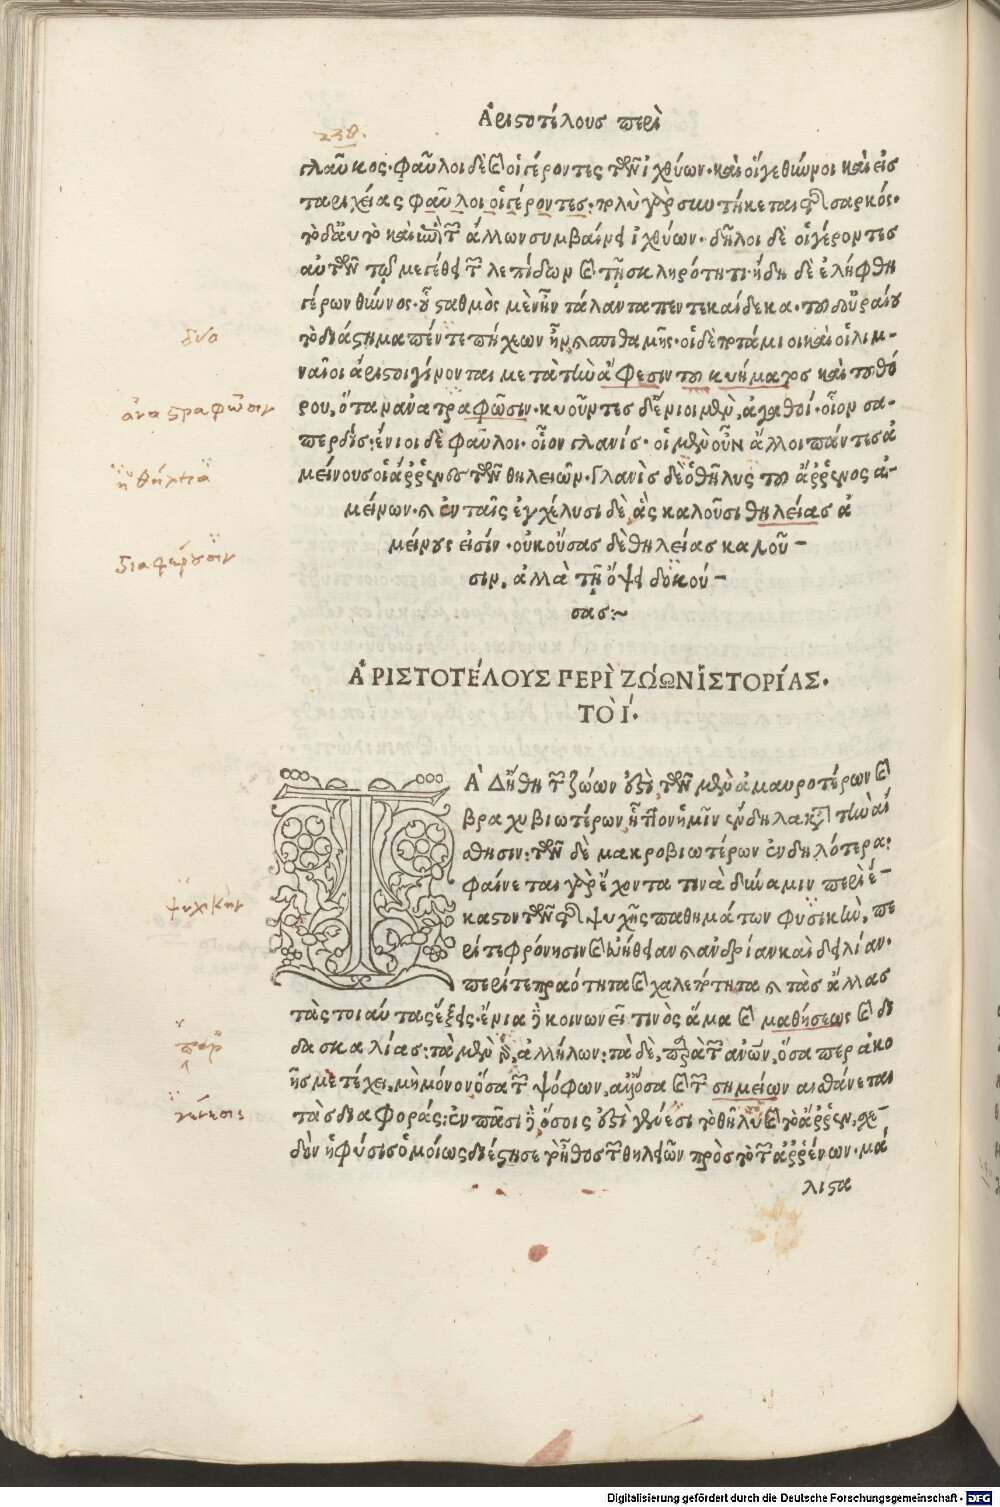 Ἀριστοτέλους περὶ
238.
γλαῦκος· φαῦλοι δὲ καὶ οἱ γέροντες τῶν ἰχθύων· καὶ οἵγε θύννοι καὶ εἰς
ταριχείας φαῦλοι οἱ γέροντες· πολὺ γὰρ συντήκεται τῆς σαρκός·
τὸ δ' αὐτὸ καὶ ἐπὶ τῶν ἄλλων συμβαίνει ἰχθύων· δῆλοι δὲ οἱ γέροντες
αὐτῶν τῷ μεγέθει τῶν λεπίδων καὶ τῇ σκληρότητι· ἤδη δὲ ἐλήφθη
γέρων θύννος· οὗ σταθμὸς μὲν ἦν τάλαντα πεντεκαίδεκα· τοῦ οὐραίου
δύο
τὸ διάστημα πέντε πήχεων ἦν καὶ σπιθαμῆς· οἱ δὲ ποτάμιοι καὶ οἱ λιμ-
ναῖοι ἄριστοι γίνονται μετὰ τὴν ἄφεσιν τοῦ κυήματος καὶ τοῦ θό
ἀναστραφῶσιν
ρου, ὅταν ἀνατραφῶσιν· κυοῦντες δ' ἔνιοι μὲν, ἀγαθοί· οἷον σα-
περδίς: ἔνιοι δὲ φαῦλοι· οἷον γλανίς· οἱ μὲν οὖν ἄλλοι πάντες ἀ
ἡ θήλεια
μείνους οἱ ἄῤῥενες τῶν θηλειῶν· Γλανὶς δὲ ὁ θῆλυς τοῦ ἄῤῥενος ἀ-
μείνων· καὶ ἐν ταῖς ἐγχέλυσι δὲ ἃς καλοῦσι θηλείας ἀ
μείνους εἰσίν· οὐκ οὔσας δὲ θηλείας καλοῦ-
διαφερούσιν
σιν, ἀλλὰ τῇ ὄψει δοκού-
σας:~
ἈΡΙΣΤΟΤΈΛΟΥΣ ΠΕΡῚ ΖΏΩΝ ἹΣΤΟΡΊΑΣ.
ΤῸ Ί.
ΤᾺ Δ' ἤθη τῶν ζώων ἐστὶ, τῶν μὲν ἀμαυροτέρων καὶ
βραχυβιωτέρων ἧττον ἡμῖν ἔνδηλα κατὰ τὴν αἴ
σθησιν: τῶν δὲ μακροβιωτέρων ἐνδηλότερα:
φαίνεται γὰρ ἔχοντα τινὰ δύναμιν περὶ ἕ-
ψυχικὴν
καστον τῶν τῆς ψυχῆς παθημάτων φυσικὴν, πε
ρί τε φρόνησιν καὶ εὐήθειαν καὶ ἀνδρίαν καὶ δειλίαν·
περί τε πραότητα καὶ χαλεπότητα καὶ τὰς ἄλλας
τὰς τοιαύτας ἕξεις· ἔνια δὲ κοινωνεῖ τινὸς ἅμα καὶ μαθήσεως καὶ δι
παρ'
δασκαλίας: τὰ μὲν παρ' ἀλλήλων: τὰ δὲ, παρὰ τῶν ἀνθρώπων, ὅσα περ ἀκο
ῆς μετέχει, μὴ μόνον ὅσα τῶν ψόφων, ἀλλ' ὅσα καὶ τῶν σημείων αἰσθάνεται
γένεσις
τὰς διαφοράς: ἐν πᾶσι δ' ὅσοις ἐστὶ γένεσι τὸ θῆλυ καὶ τὸ ἄῤῥεν, σχε-
δὸν ἡ φύσις ὁμοίως διέστησε τὸ ἦθος τῶν θηλειῶν πρὸς τὸ τῶν ἀῤῥένων· μά
λιστα
Digitalisierung gefördert durch die Deutsche Forschungsgemeinschaft - DFG